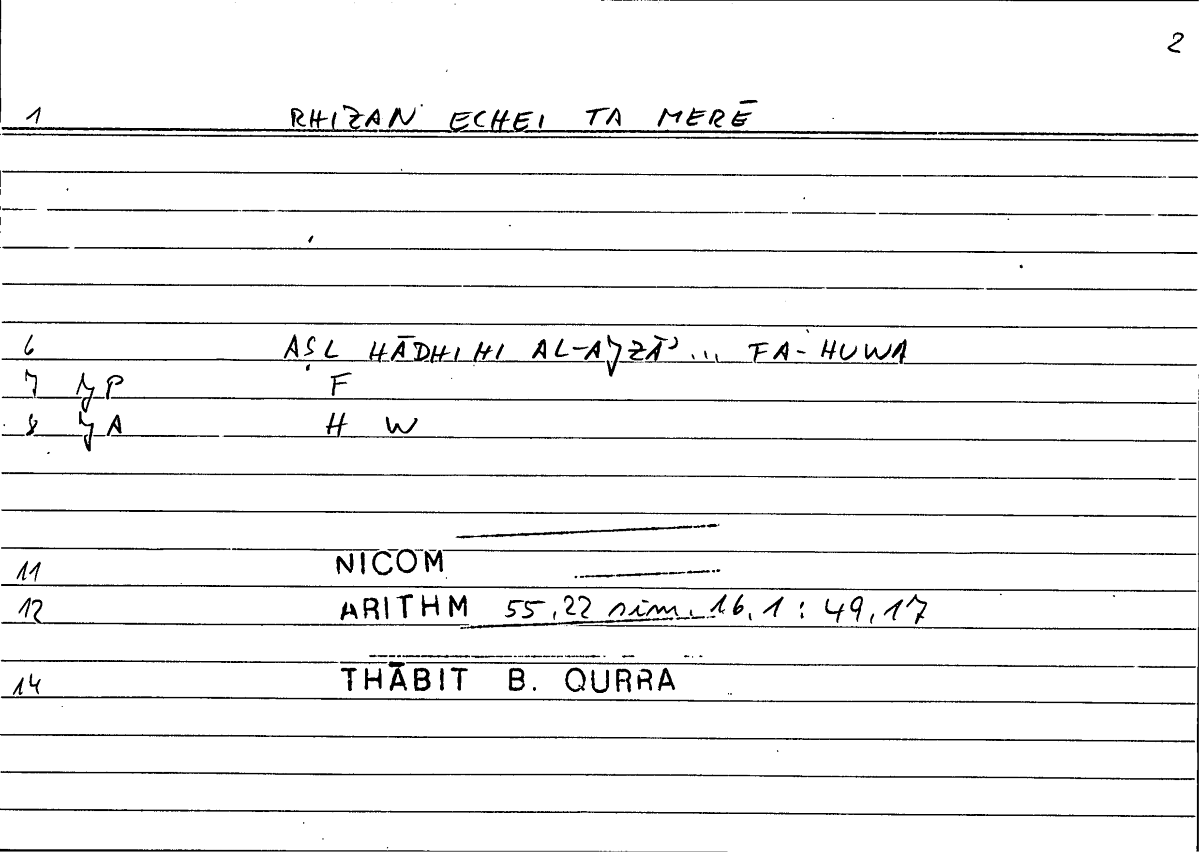 2
1 RHIZAN ECHEI TA MERĒ
6 AṢL HĀDHIHI AL-AJZĀʾ... FA-HUWA
7 JP F
8 JA H W
11 NICOM
12 ARITHM 55,22 sim. 16,1 : 49,17
14 THĀBIT B. QURRA